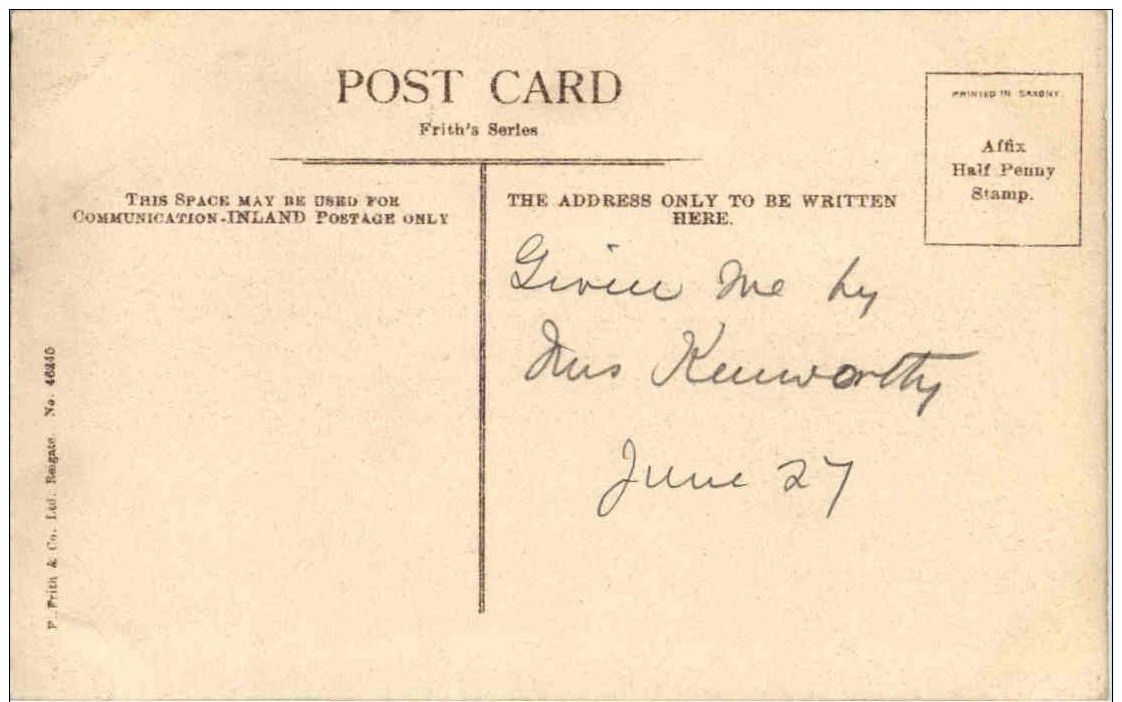 POST CARD
Frith's Series
PRINTED IN SAXONY.
Affix
Half Penny
Stamp.
THIS SPACE MAY BE USED FOR
COMMUNICATION-INLAND POSTAGE ONLY
THE ADDRESS ONLY TO BE WRITTEN
HERE.
Given me by
Mrs Kenworthy
June 27
F. Frith & Co. Ltd. Reigate. No. 46245